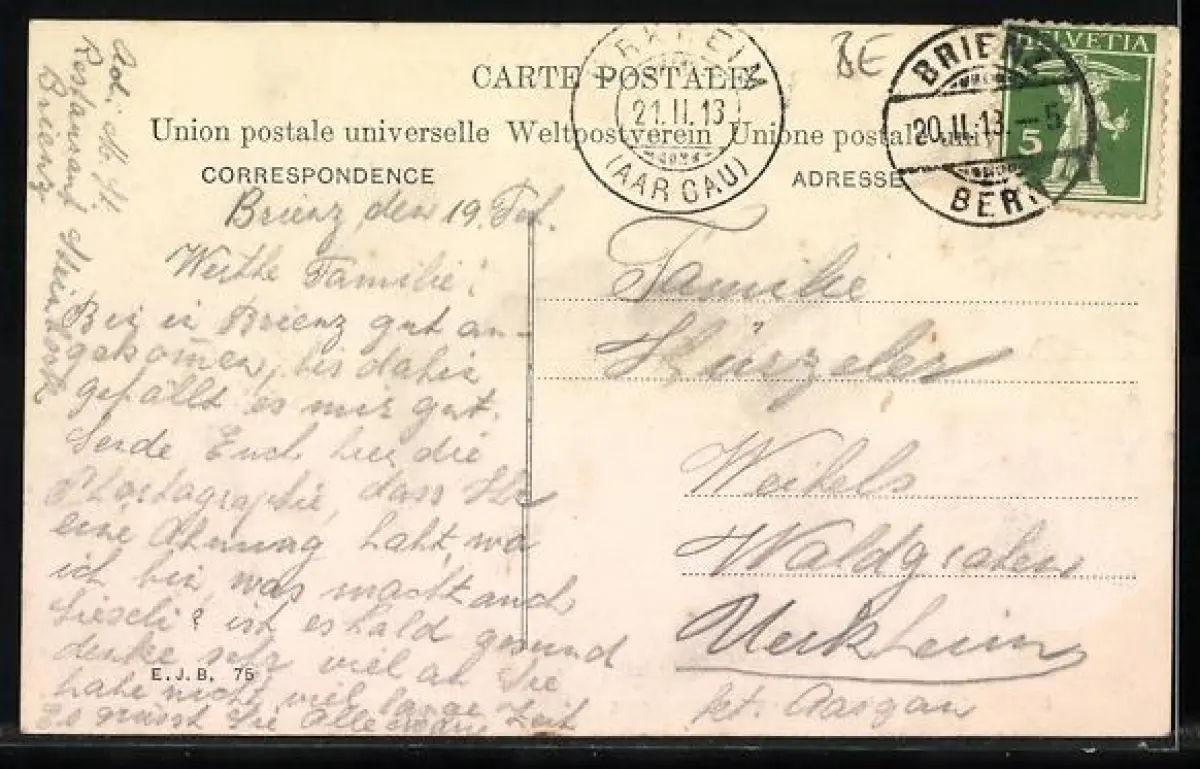 BE
CARTE POSTALE
Union postale universelle Weltpostverein Unione postale univ
CORRESPONDENCE
ADRESSE
21.II.13
(AARGAU)
BRIENZ
20.II.13.–5
BERN
HELVETIA
5
Brienz, den 19. Feb.
Werthe Familie!
Bin in Brienz gut an-
gekomen, bis dahin
gefällt es mir gut.
Sende Euch hier die
Photographie, dass Ihr
eine Ahnung habt, wo
ich bin, was macht auch
Lieseli? ist es bald gesund
denke sehr viel an Sie
habe nicht viel lange Zeit
Es grüsst Sie Alle
Adr. M. H.
Restaurant
Brienz
Familie
Hürzeler
Weibels
Waldgraben
Uerkheim
kt. Aargau
E.J.B. 75